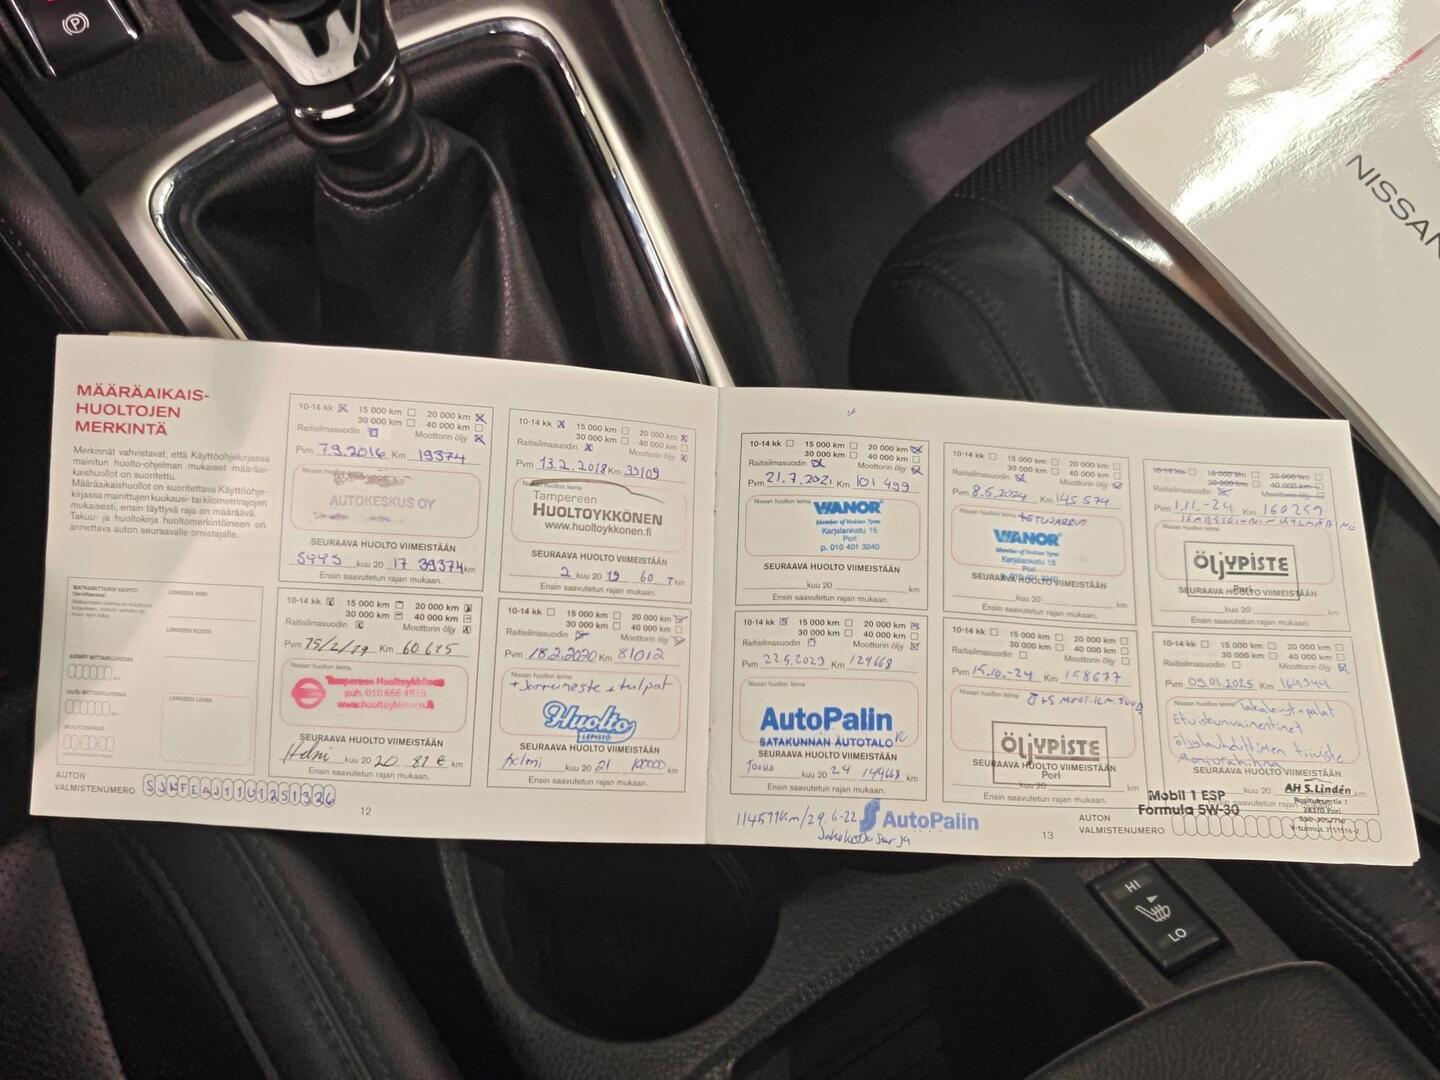 P
NISSAN
MÄÄRÄAIKAIS-
HUOLTOJEN
MERKINTÄ
Merkinnät vahvistavat, että Käyttöohjekirjassa
mainitun huolto-ohjelman mukaiset määräai-
kaishuollot on suoritettu.
Määräaikaishuollot on suoritettava Käyttöohje-
kirjassa mainittujen kuukausi- tai kilometrirajojen
mukaisesti, ensin täyttyvä raja on määräävä.
Takuu- ja huoltokirja huoltomerkintöineen on
annettava auton seuraavalle omistajalle.
MATKAMITTARIN VAIHTO
LIIKKEEN NIMI
LIIKKEEN KOODI
AIEMPI MITTARILUKEMA
UUSI MITTARILUKEMA
LIIKKEEN LEIMA
MUUTOSPÄIVÄ
AUTON
VALMISTENUMERO
10-14 kk 15 000 km 20 000 km
30 000 km 40 000 km
Raitisilmasuodin Moottorin öljy
Pvm 7.9.2016 Km 19374
Nissan huollon leima
AUTOKESKUS OY
SEURAAVA HUOLTO VIIMEISTÄÄN
SYYS kuu 20 17 39374 km
Ensin saavutetun rajan mukaan.
10-14 kk 15 000 km 20 000 km
30 000 km 40 000 km
Raitisilmasuodin Moottorin öljy
Pvm 13.2.2018 Km 39109
Nissan huollon leima
Tampereen
HUOLTOYKKÖNEN
www.huoltoykkonen.fi
SEURAAVA HUOLTO VIIMEISTÄÄN
2 kuu 20 19 60 T km
Ensin saavutetun rajan mukaan.
10-14 kk 15 000 km 20 000 km
30 000 km 40 000 km
Raitisilmasuodin Moottorin öljy
Pvm 15/2/19 Km 60 615
Nissan huollon leima
Tampereen Huoltoykkönen
puh. 010 666 4928
www.huoltoykkonen.fi
SEURAAVA HUOLTO VIIMEISTÄÄN
Helmi kuu 20 20 km
Ensin saavutetun rajan mukaan.
10-14 kk 15 000 km 20 000 km
30 000 km 40 000 km
Raitisilmasuodin Moottorin öljy
Pvm 18.2.2020 Km 81012
Nissan huollon leima
+ Jarruneste + tulpat
Huolto
LEPISTÖ
SEURAAVA HUOLTO VIIMEISTÄÄN
Helmi kuu 20 21 100000 km
Ensin saavutetun rajan mukaan.
12
10-14 kk 15 000 km 20 000 km
30 000 km 40 000 km
Raitisilmasuodin Moottorin öljy
Pvm 21.7.2021 Km 101 499
Nissan huollon leima
VIANOR
Member of Nokian Tyres
Karjalankatu 15
Pori
p. 010 401 3240
SEURAAVA HUOLTO VIIMEISTÄÄN
kuu 20 km
Ensin saavutetun rajan mukaan.
10-14 kk 15 000 km 20 000 km
30 000 km 40 000 km
Raitisilmasuodin Moottorin öljy
Pvm 8.5.2024 Km 145 574
Nissan huollon leima
+ETUJARRUT
VIANOR
Member of Nokian Tyres
Karjalankatu 15
Pori
SEURAAVA HUOLTO VIIMEISTÄÄN
kuu 20 km
Ensin saavutetun rajan mukaan.
10-14 kk 15 000 km 20 000 km
30 000 km 40 000 km
Raitisilmasuodin Moottorin öljy
Pvm 1.11.-24 Km 160259
Nissan huollon leima
ÖLJYPISTE
Pori
SEURAAVA HUOLTO VIIMEISTÄÄN
kuu 20 km
Ensin saavutetun rajan mukaan.
10-14 kk 15 000 km 20 000 km
30 000 km 40 000 km
Raitisilmasuodin Moottorin öljy
Pvm 22.5.2023 Km 129668
Nissan huollon leima
AutoPalin
SATAKUNNAN AUTOTALO
SEURAAVA HUOLTO VIIMEISTÄÄN
Touko kuu 20 24 149668 km
Ensin saavutetun rajan mukaan.
10-14 kk 15 000 km 20 000 km
30 000 km 40 000 km
Raitisilmasuodin Moottorin öljy
Pvm 15.10.-24 Km 158677
Nissan huollon leima
Ö+S MOOT.ILM.SUOD
ÖLJYPISTE
Pori
SEURAAVA HUOLTO VIIMEISTÄÄN
kuu 20 km
Ensin saavutetun rajan mukaan.
10-14 kk 15 000 km 20 000 km
30 000 km 40 000 km
Raitisilmasuodin Moottorin öljy
Pvm 09.01.2025 Km 164944
Nissan huollon leima
Takalevyt + palat
öljylauhduttimen tiiviste
Moniurahihna
SEURAAVA HUOLTO VIIMEISTÄÄN
kuu 20 km
AH S.Lindén
28370 Pori
Mobil 1 ESP
Formula 5W-30
114511km/29.6-22 AutoPalin
Jakoketju sarja
13
AUTON
VALMISTENUMERO
HI
LO